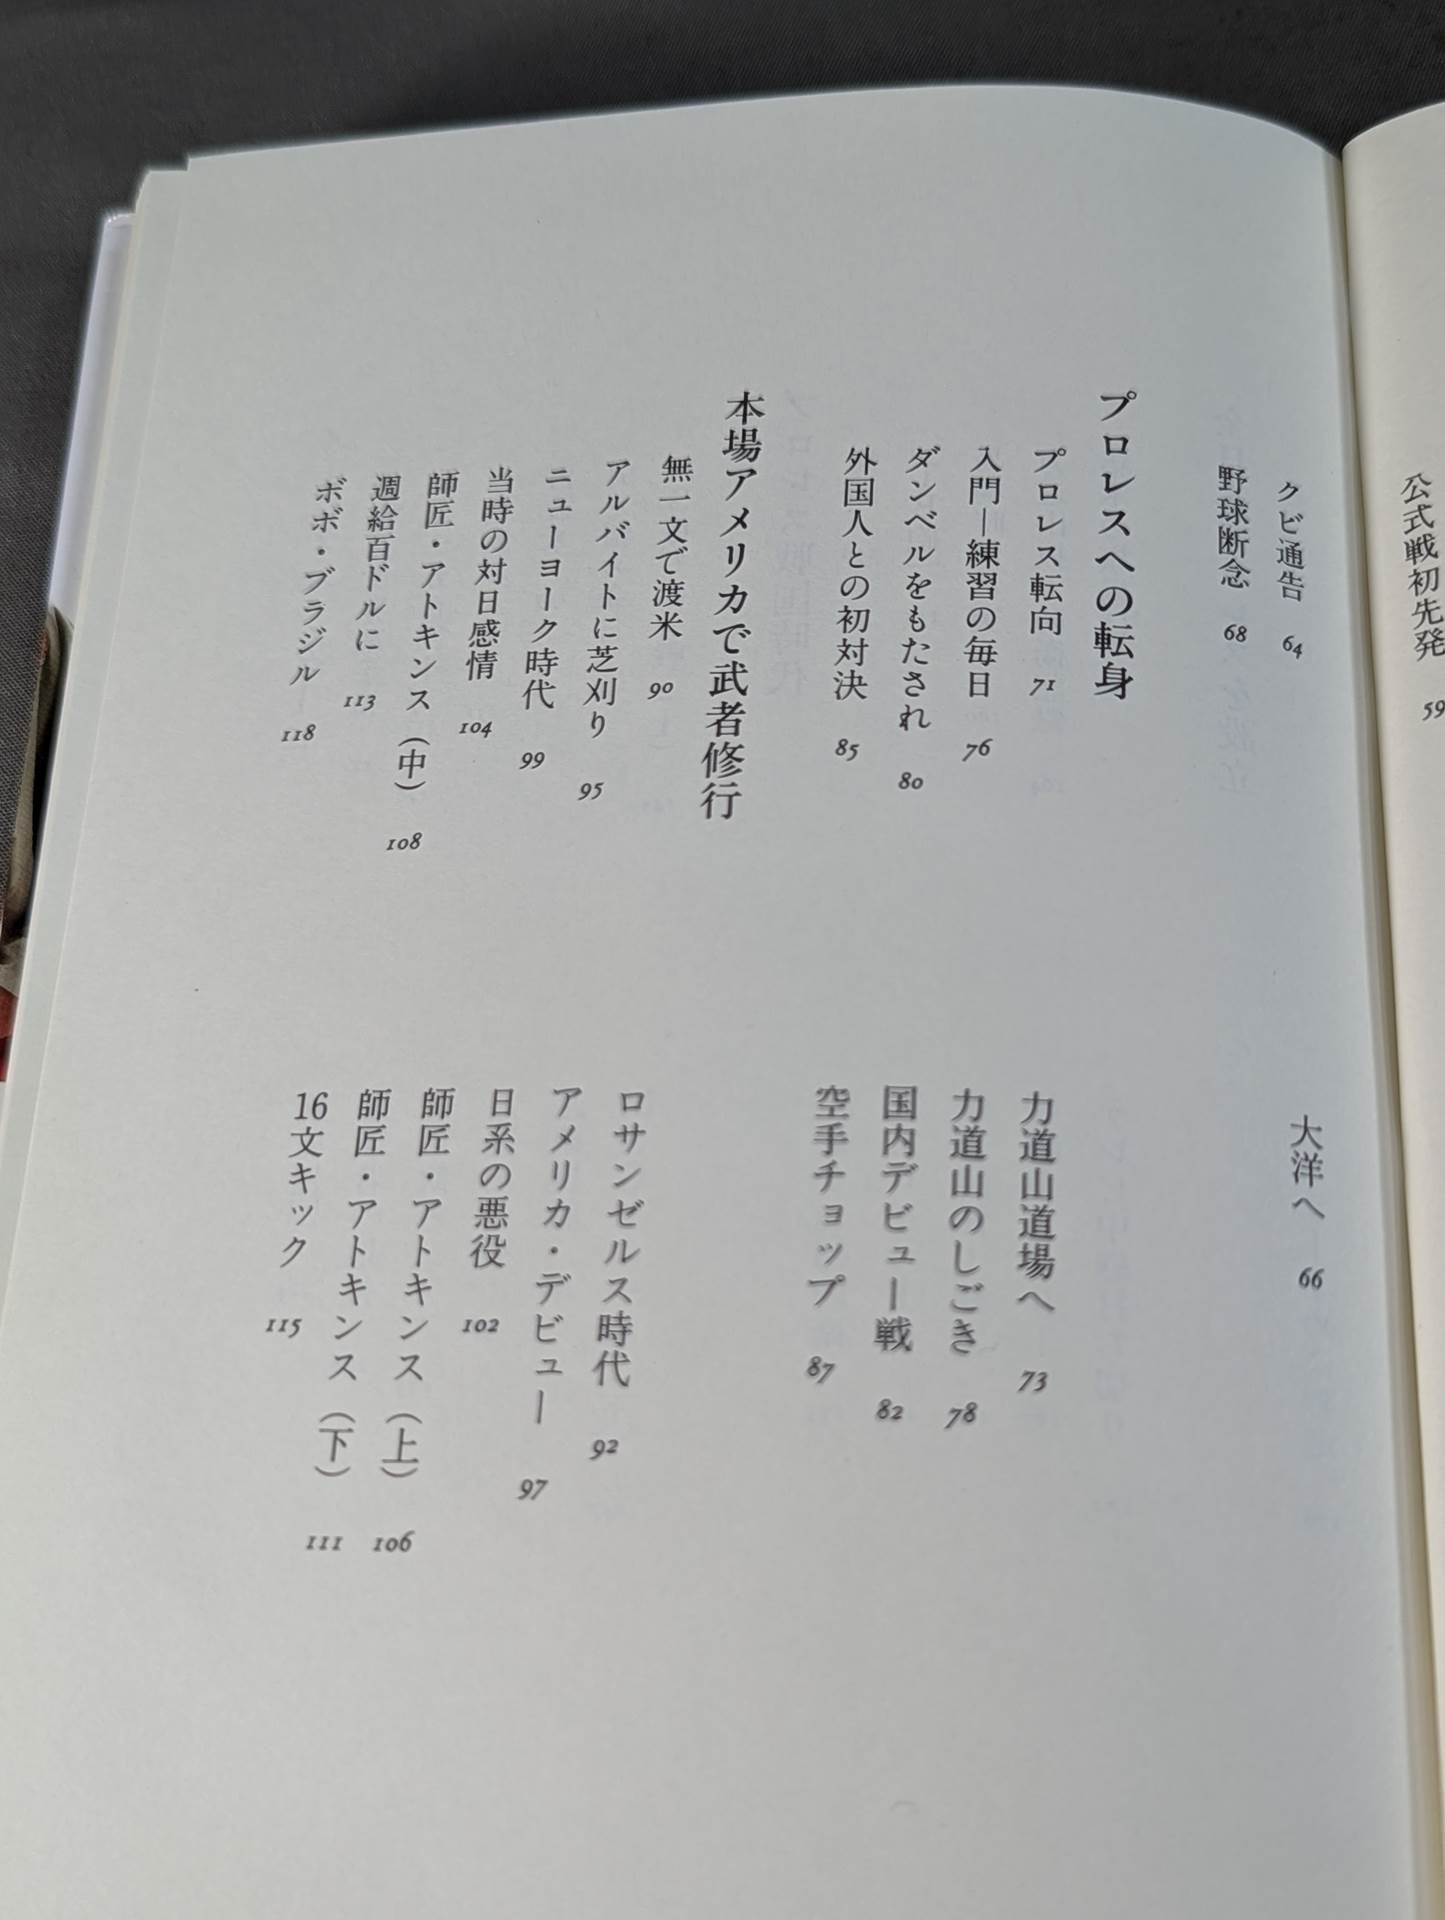 公式戦初先発 59
クビ通告 64
大洋へ 66
野球断念 68
プロレスへの転身
プロレス転向 71
力道山道場へ 73
入門―練習の毎日 76
力道山のしごき 78
ダンベルをもたされ 80
国内デビュー戦 82
外国人との初対決 85
空手チョップ 87
本場アメリカで武者修行
無一文で渡米 90
ロサンゼルス時代 92
アルバイトに芝刈り 95
アメリカ・デビュー 97
ニューヨーク時代 99
日系の悪役 102
当時の対日感情 104
師匠・アトキンス（上） 106
師匠・アトキンス（中） 108
師匠・アトキンス（下） 111
週給百ドルに 113
16文キック 115
ボボ・ブラジル 118